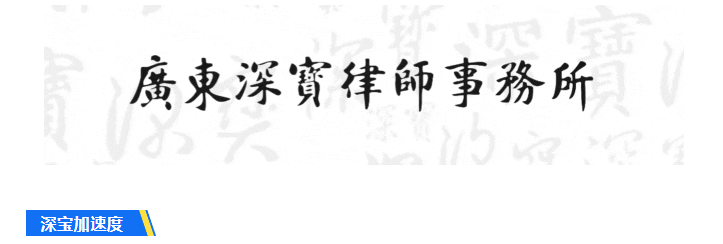 廣東深寶律師事務所
深宝加速度